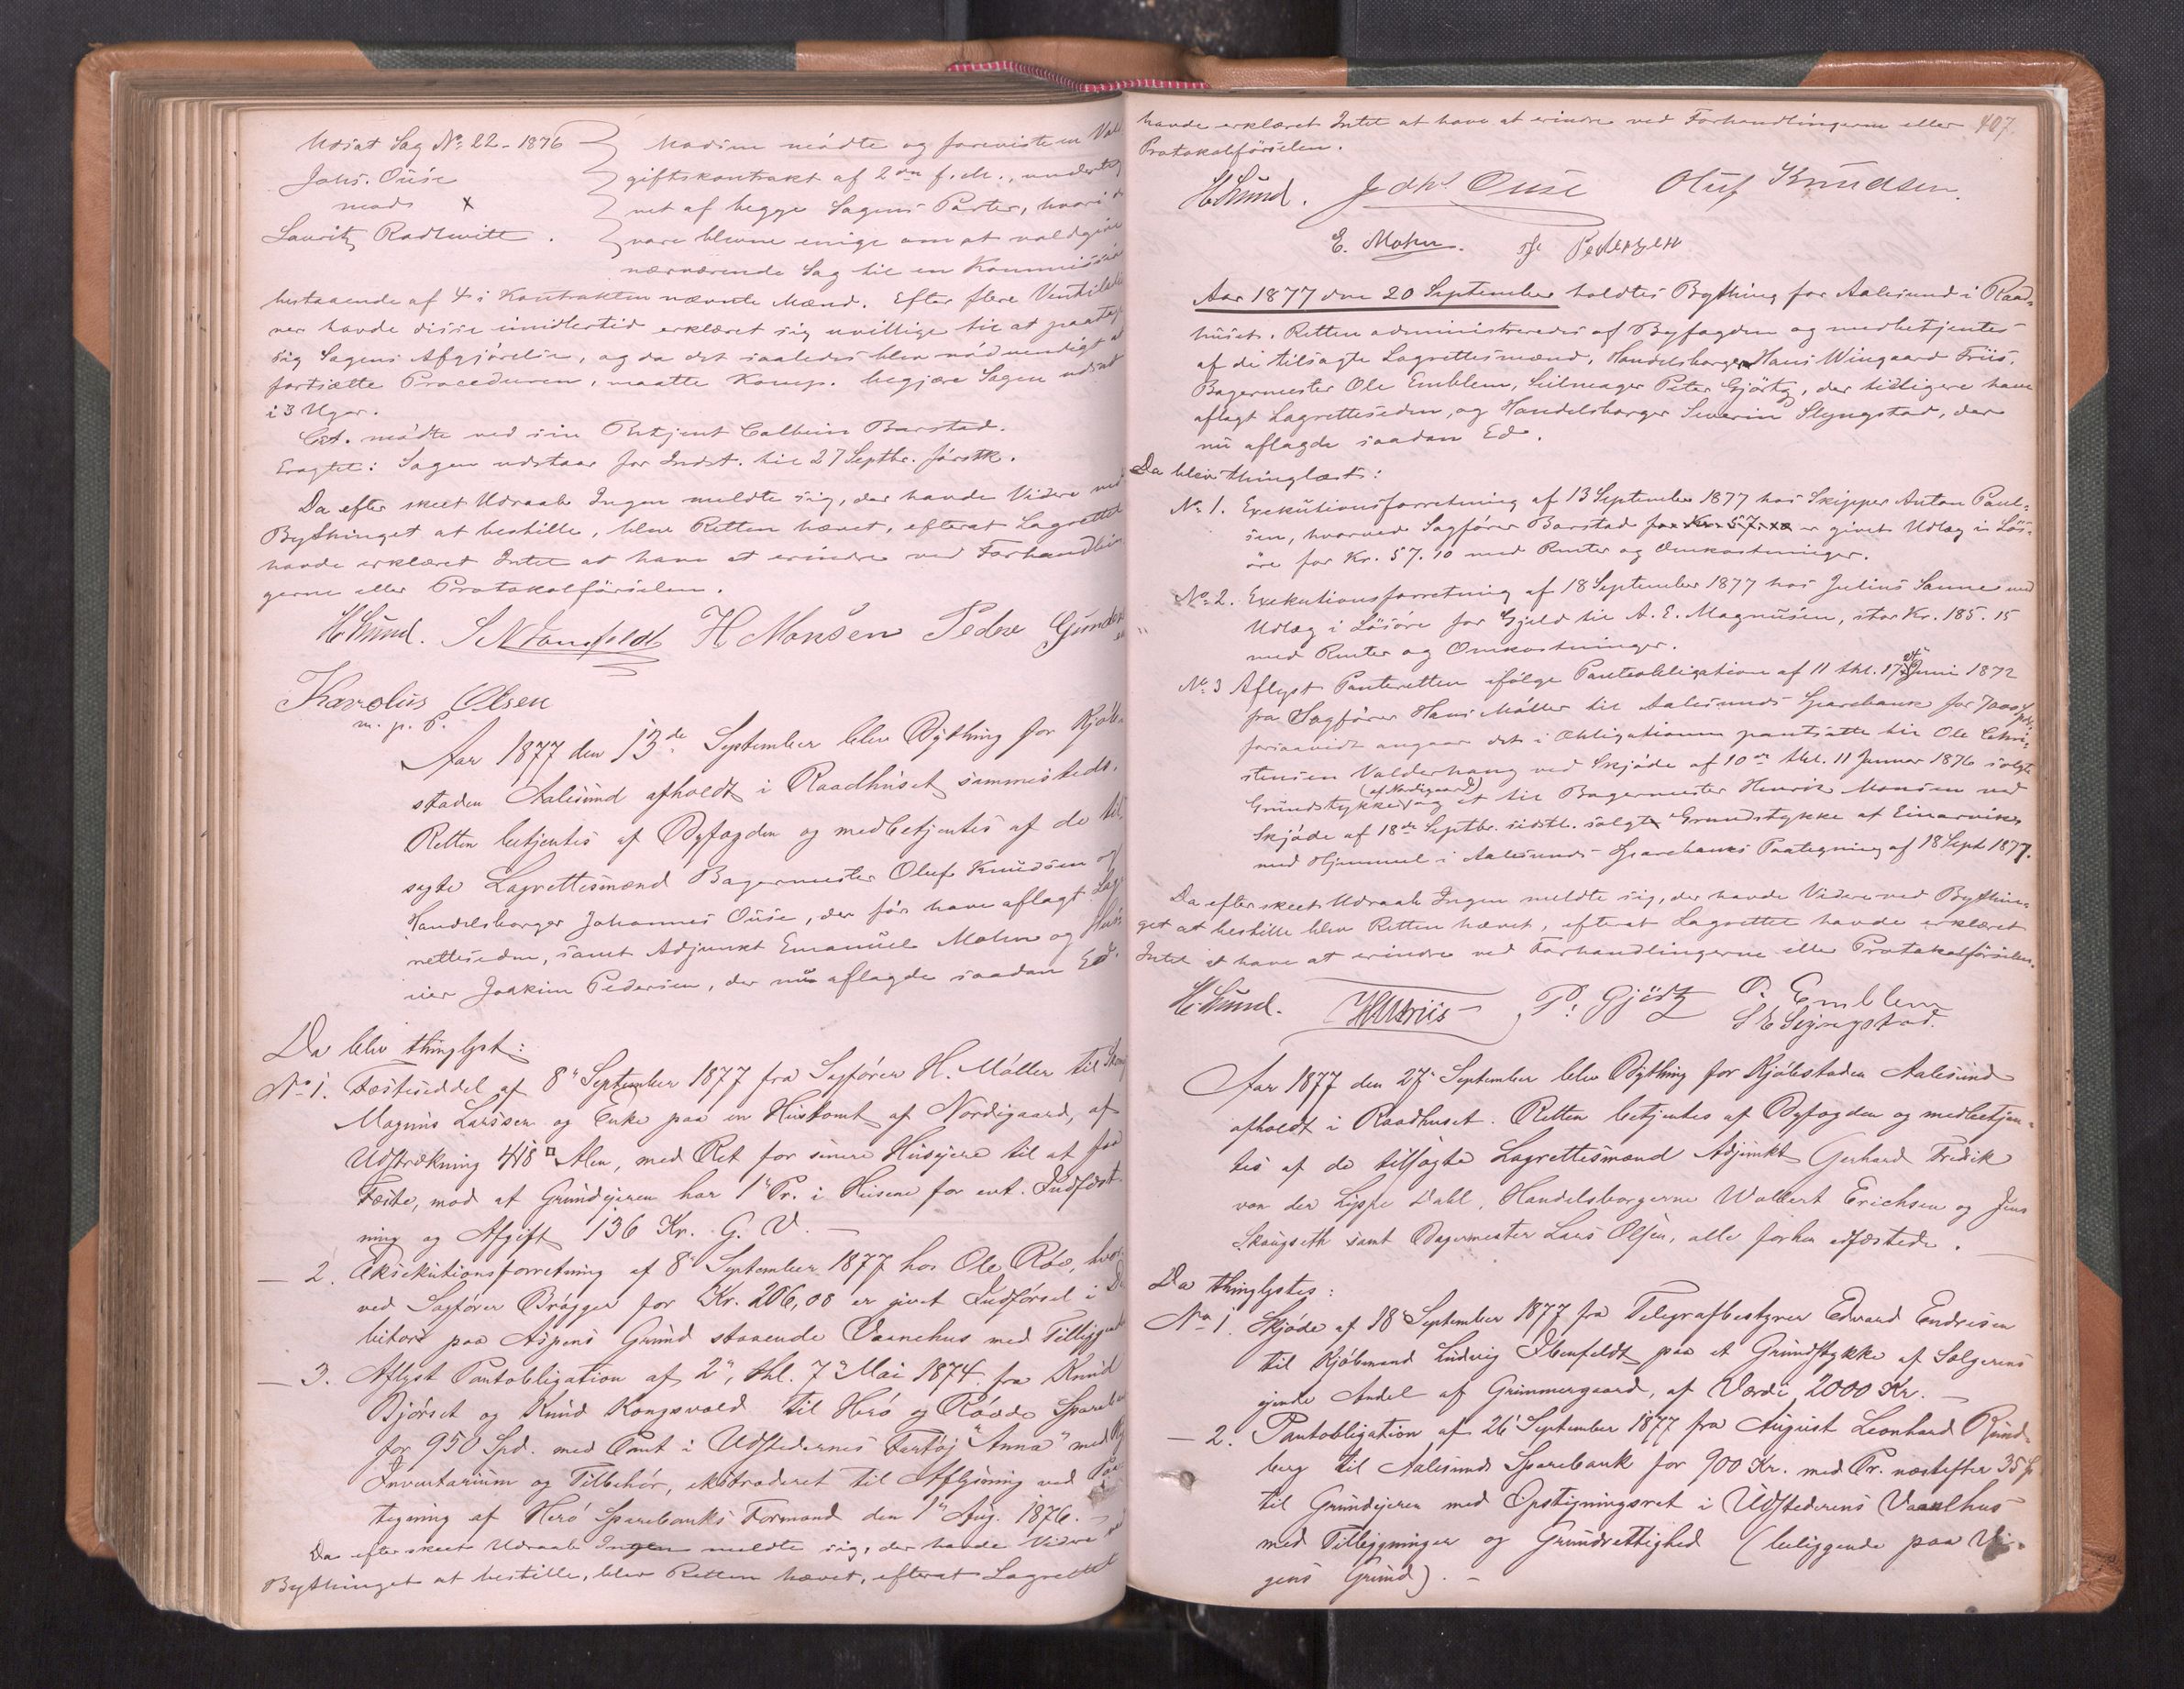 Udsat Sag No: 22 - 1876
Johs. Ouse
mod
Lauritz Rodtwitt.
Madsen mødte og foreviste en Vold
giftskontrakt af 2den f. M., underteg
net af begge Sagens Parter, hvori de
vare blevne enige om at voldgive
nærværende Sag til en Kommission
bestaaende af 4 i Kontrakten nævnte Mænd. Efter flere
ner havde disse imidlertid erklæret sig uvillige til at paatage
sig Sagens Afgjørelse, og da det saaledes blev nødvendigt at
fortsætte Proceduren, maatte Komp. begjære Sagen udsat
i 3 Uger.
Cit. mødte ved sin Betjent Calbein Barstad.
Eragtet: Sagen udstaar for Indst. til 27 Septbr. førstk.
Da efter skeet Udraab Ingen meldte sig, der havde Videre ved
Bythinget at bestille, blev Retten hævet, efterat Lagrettet
havde erklæret Intet at have at erindre ved Forhandlin
gerne eller Protokolførselen.
H Lund. H Monsen Peder Gunder
sen
Karolus Olsen
m. p. P.
Aar 1877 den 13de September blev Bything for Kjøb
staden Aalesund afholdt i Raadhuset sammesteds.
Retten betjentes af Byfogden og medbetjentes af de til
sagte Lagrettesmænd Bagermester Oluf Knudsen og
Handelsborger Johannes Ouse, der før have aflagt Lag
rettesedn, samt Adjunkt Emanuel Mohn og Hus
eier Joakim Pedersen, der nu aflagde saadan Ed.
Da blev thinglyst:
No 1. Fæsteseddel af 8" September 1877 fra Sagfører H. Møller til
Magnus Larssen og Enke paa en Hustomt af Nordigaard, af
Udstrækning 418 □ Alen, med Ret for senere Huseiere til at faa
Fæste, mod at Grundeieren har 1" Pr. i Husene for evt. Indfæst
ning og Afgift 136 Kr. G. V. —
— 2. Eksekutionsforretning af 8" September 1877 hos Ole Røv, hvor
ved Sagfører Brøgger for Kr. 206,08 er givet Indførsel i De
bitors paa Aspens Grund staaende Vaanehus med Tilligg
— 3. Aflyst Pantobligation af 2", thl. 7" Mai 1874 fra Knud
Bjørset og Knud Kongsvold til Herø og Røvde Spareb
for 950 Spd. med Pant i Udstedernes Fartøj "Anna" med
Inventarium og Tilbehør, ekstraderet til Aflysning ved Paa
tegning af Herø Sparebanks Formand den 1" Aug. 1876. —
Da efter skeet Udraab Ingen meldte sig, der havde Videre ved
Bythinget at bestille, blev Retten hævet, efterat Lagrettet
407.
havde erklæret Intet at have at erindre ved Forhandlingerne eller
Protokolførselen.
H Lund. Johs Ouse Oluf Knudsen.
E. Mohn. Pedersen
Aar 1877 den 20 September holdtes Bything for Aalesund i Raad-
huset. Retten administreredes af Byfogden og medbetjentes
af de tilsagte Lagrettesmænd, Handelsborger Hans Wingaard Friis,
Bagermester Ole Emblem, Seilmager Peter Gjørtz, der tidligere have
aflagt Lagretteseden, og Handelsborger Severin Slyngstad, der
nu aflagde saadan Ed.
Da blev thinglæst:
No 1. Exekutionsforretning af 13 September 1877 hos Skipper Anton Paul-
sen, hvorved Sagfører Barstad for Kr. 57.10 er givet Udlæg i Løs-
øre for Kr. 57.10 med Renter og Omkostninger.
No 2. Exekutionsforretning af 18 September 1877 hos Julius Sanne med
Udlæg i Løsøre for Gjeld til A. E. Magnusen, stor Kr. 185.15
med Renter og Omkostninger.
No 3 Aflyst Panteretten ifølge Panteobligation af 11 thl. 17 Juni 1872
fra Sagfører Hans Møller til Aalesunds Sparebank for 7000 Spd.
forsaavidt angaar det i Obligationen pantsatte til Ole Chri-
stensen Valderhaug ved Skjøde af 10de thl. 11 Januar 1876 solgte
(af Nordigaard)
Grundstykke og et til Bagermester Henrik Monsen ved
Skjøde af 18de Septbr. sidstl. solgte Grundstykke af Einarviken
med Hjemmel i Aalesunds Sparebanks Paategning af 18 Sept 1877.
Da efter skeet Udraab Ingen meldte sig, der havde Videre ved Bythin-
get at bestille blev Retten hævet, efterat Lagrettet havde erklæret
Intet at have at erindre ved Forhandlingerne eller Protokolførselen.
H. Lund. HWFriis P. Gjørtz O. Emblem
S E Slyngstad.
Aar 1877 den 27" September blev Bything for Kjøbstaden Aalesund
afholdt i Raadhuset. Retten betjentes af Byfogden og medbetjen-
tes af de tilsagte Lagrettesmænd Adjunkt Gerhard Fredrik
von der Lippe Dahl, Handelsborgerne Wollert Erichsen og Jens
Skougseth samt Bagermester Lars Olsen, alle forhen edfæstede. —
Da thinglystes:
No 1. Skjøde af 18" September 1877 fra Telegrafbestyrer Edvard Endresen
til Kjøbmand Ludvig Ibenfeldt paa et Grundstykke af Sælgerens
eiende Andel af Grimmergaard, af Værdi 2000 Kr. —
— 2. Pantobligation af 26" September 1877 fra August Leonhard Rund-
berg til Aalesunds Sparebank for 900 Kr. med Pr. næstefter 35
til Grundeieren med Opstigningsret i Udstederens Vaanehus
med Tilligginger og Grundrettighed (beliggende paa Vi-
gens Grund). —